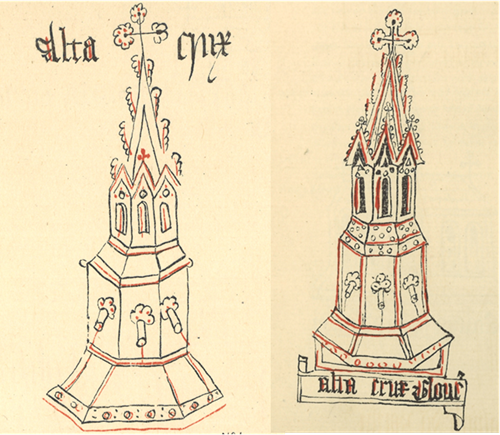 alta crux
alta crux Glouc̄